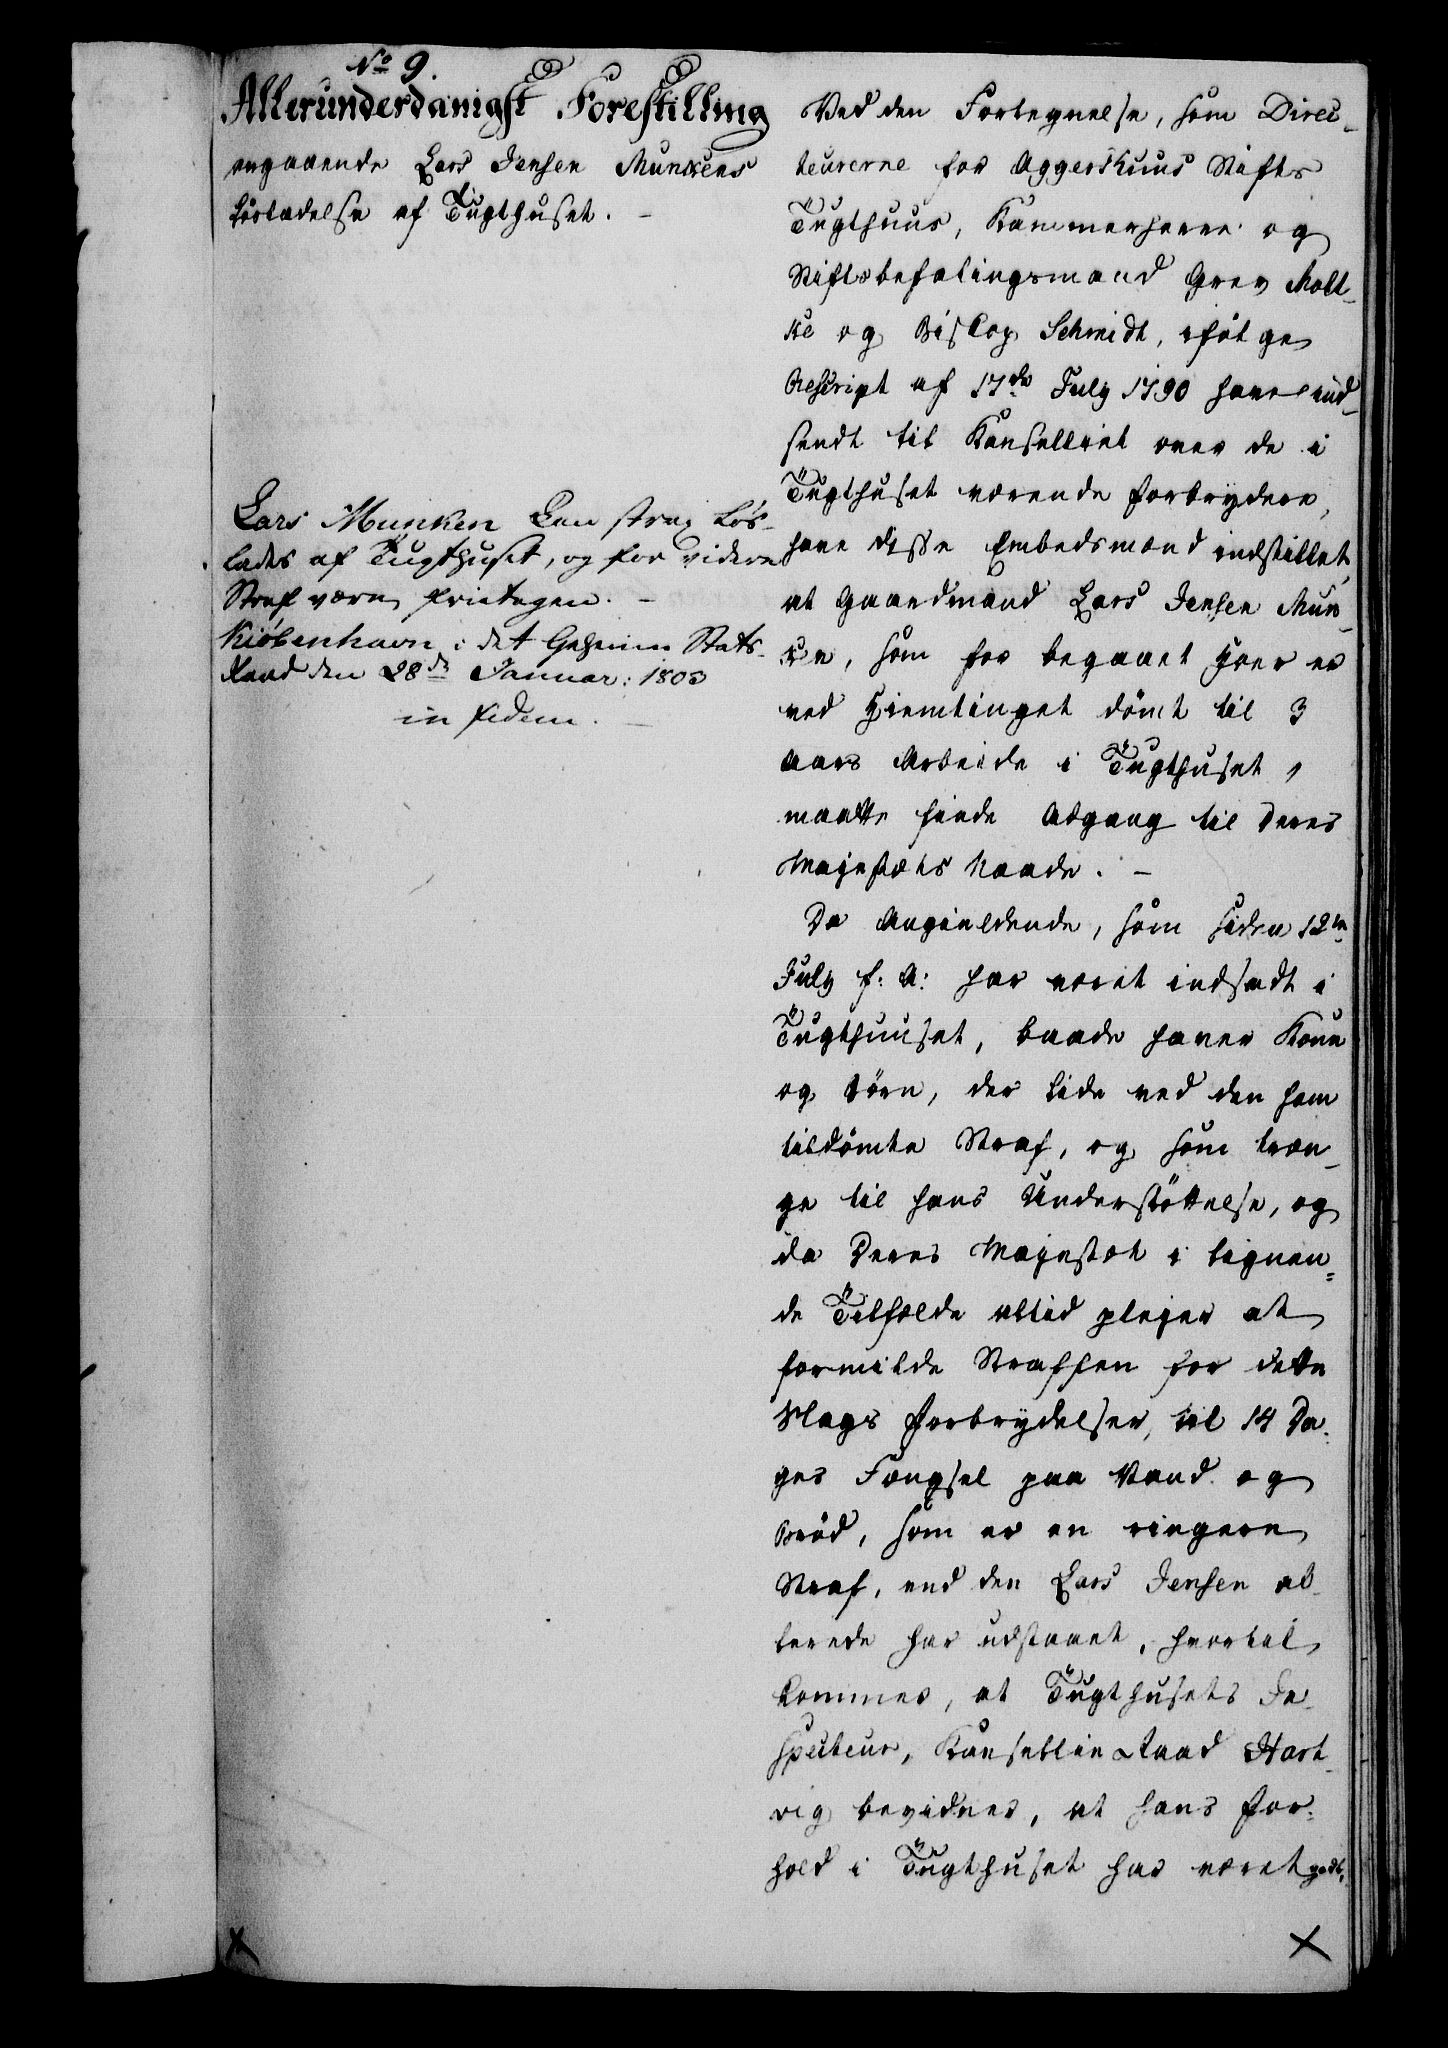 No 9.
Allerunderdanigst Forestilling
angaaende Lars Jensen Munkens
Løsladelse af Tugthuset. –
Lars Munken kan strax løs-
lades af Tugthuset, og for videre
Straf være fritagen. –
Kiøbenhavn i det Geheime Stats-
Raad den 28de Januar: 1803
in fidem. –
Ved den Fortegnelse, som Direc-
teurerne for Aggershuus Stifts
Tugthuus, Kammerherre og
Stiftsbefalingsmand Grev Molt-
ke og Biskop Schmidt, ifølge
Rescript af 17de July 1790 have ind-
sendt til Kanselliet over de i
Tugthuset værende Forbrydere,
have disse Embedsmænd indstillet,
at Gaardmand Lars Jensen Mun-
ken, som for begaaet Hoer er
ved Hiemtinget dömt til 3
Aars Arbeide i Tugthuset,
maatte finde Adgang til Deres
Majestæts Naade. –
Da Angieldende, som siden 12te
July f: A: har været indsadt i
Tugthuuset, baade haver Kone
og Börn, der lide ved den ham
tildömte Straf, og som træn-
ge til hans Understöttelse, og
da Deres Majestæt i lignen-
de Tilfælde altid plejer at
formilde Straffen for dette
Slags Forbrydelser, til 14 Da-
ges Fængsel paa Vand og
Bröd, som er en ringere
Straf, end den Lars Jensen al-
lerede har udstaaet, hvortil
kommer, at Tugthusets In-
specteur, Kansellie Raad Hart-
vig bevidner, at hans For-
hold i Tugthuset har været godt,